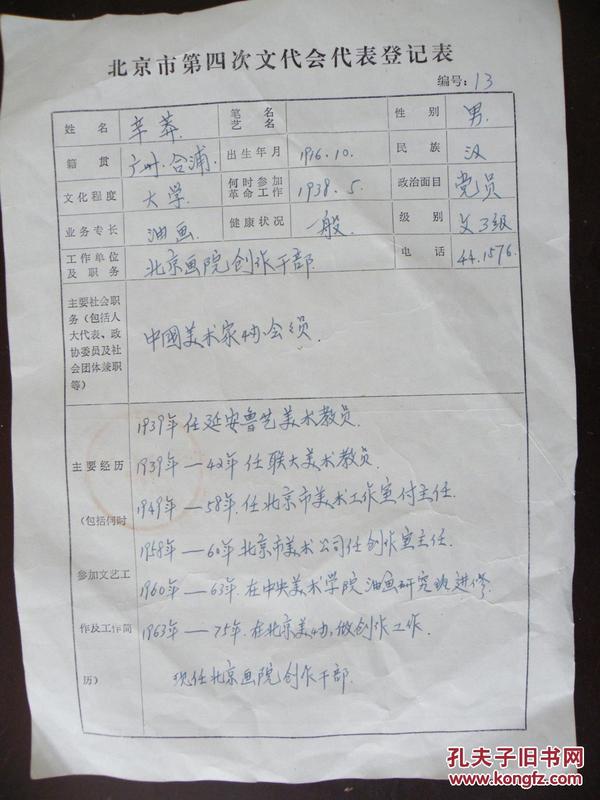 北京市第四次文代会代表登记表
编号：13
姓名 辛莽 笔名艺名 性别 男.
籍贯 广州.合浦. 出生年月 1916.10. 民族 汉
文化程度 大学 何时参加革命工作 1938.5. 政治面目 党员
业务专长 油画. 健康状况 一般. 级别 文3级
工作单位及职务 北京画院创作干部. 电话 44.1576.
主要社会职务（包括人大代表、政协委员及社会团体兼职等） 中國美术家协会会员.
主要经历（包括何时参加文艺工作及工作简历）
1939年任延安鲁艺美术教员.
1939年—42年任联大美术教员.
1949年—58年.任北京市美术工作室付主任.
1958年—60年北京市美术公司任创作室主任.
1960年—63年.在中央美术学院油画研究班进修.
1963年—75年.在北京美协,做创作工作.
现任北京画院创作干部.
孔夫子旧书网
www.kongfz.com